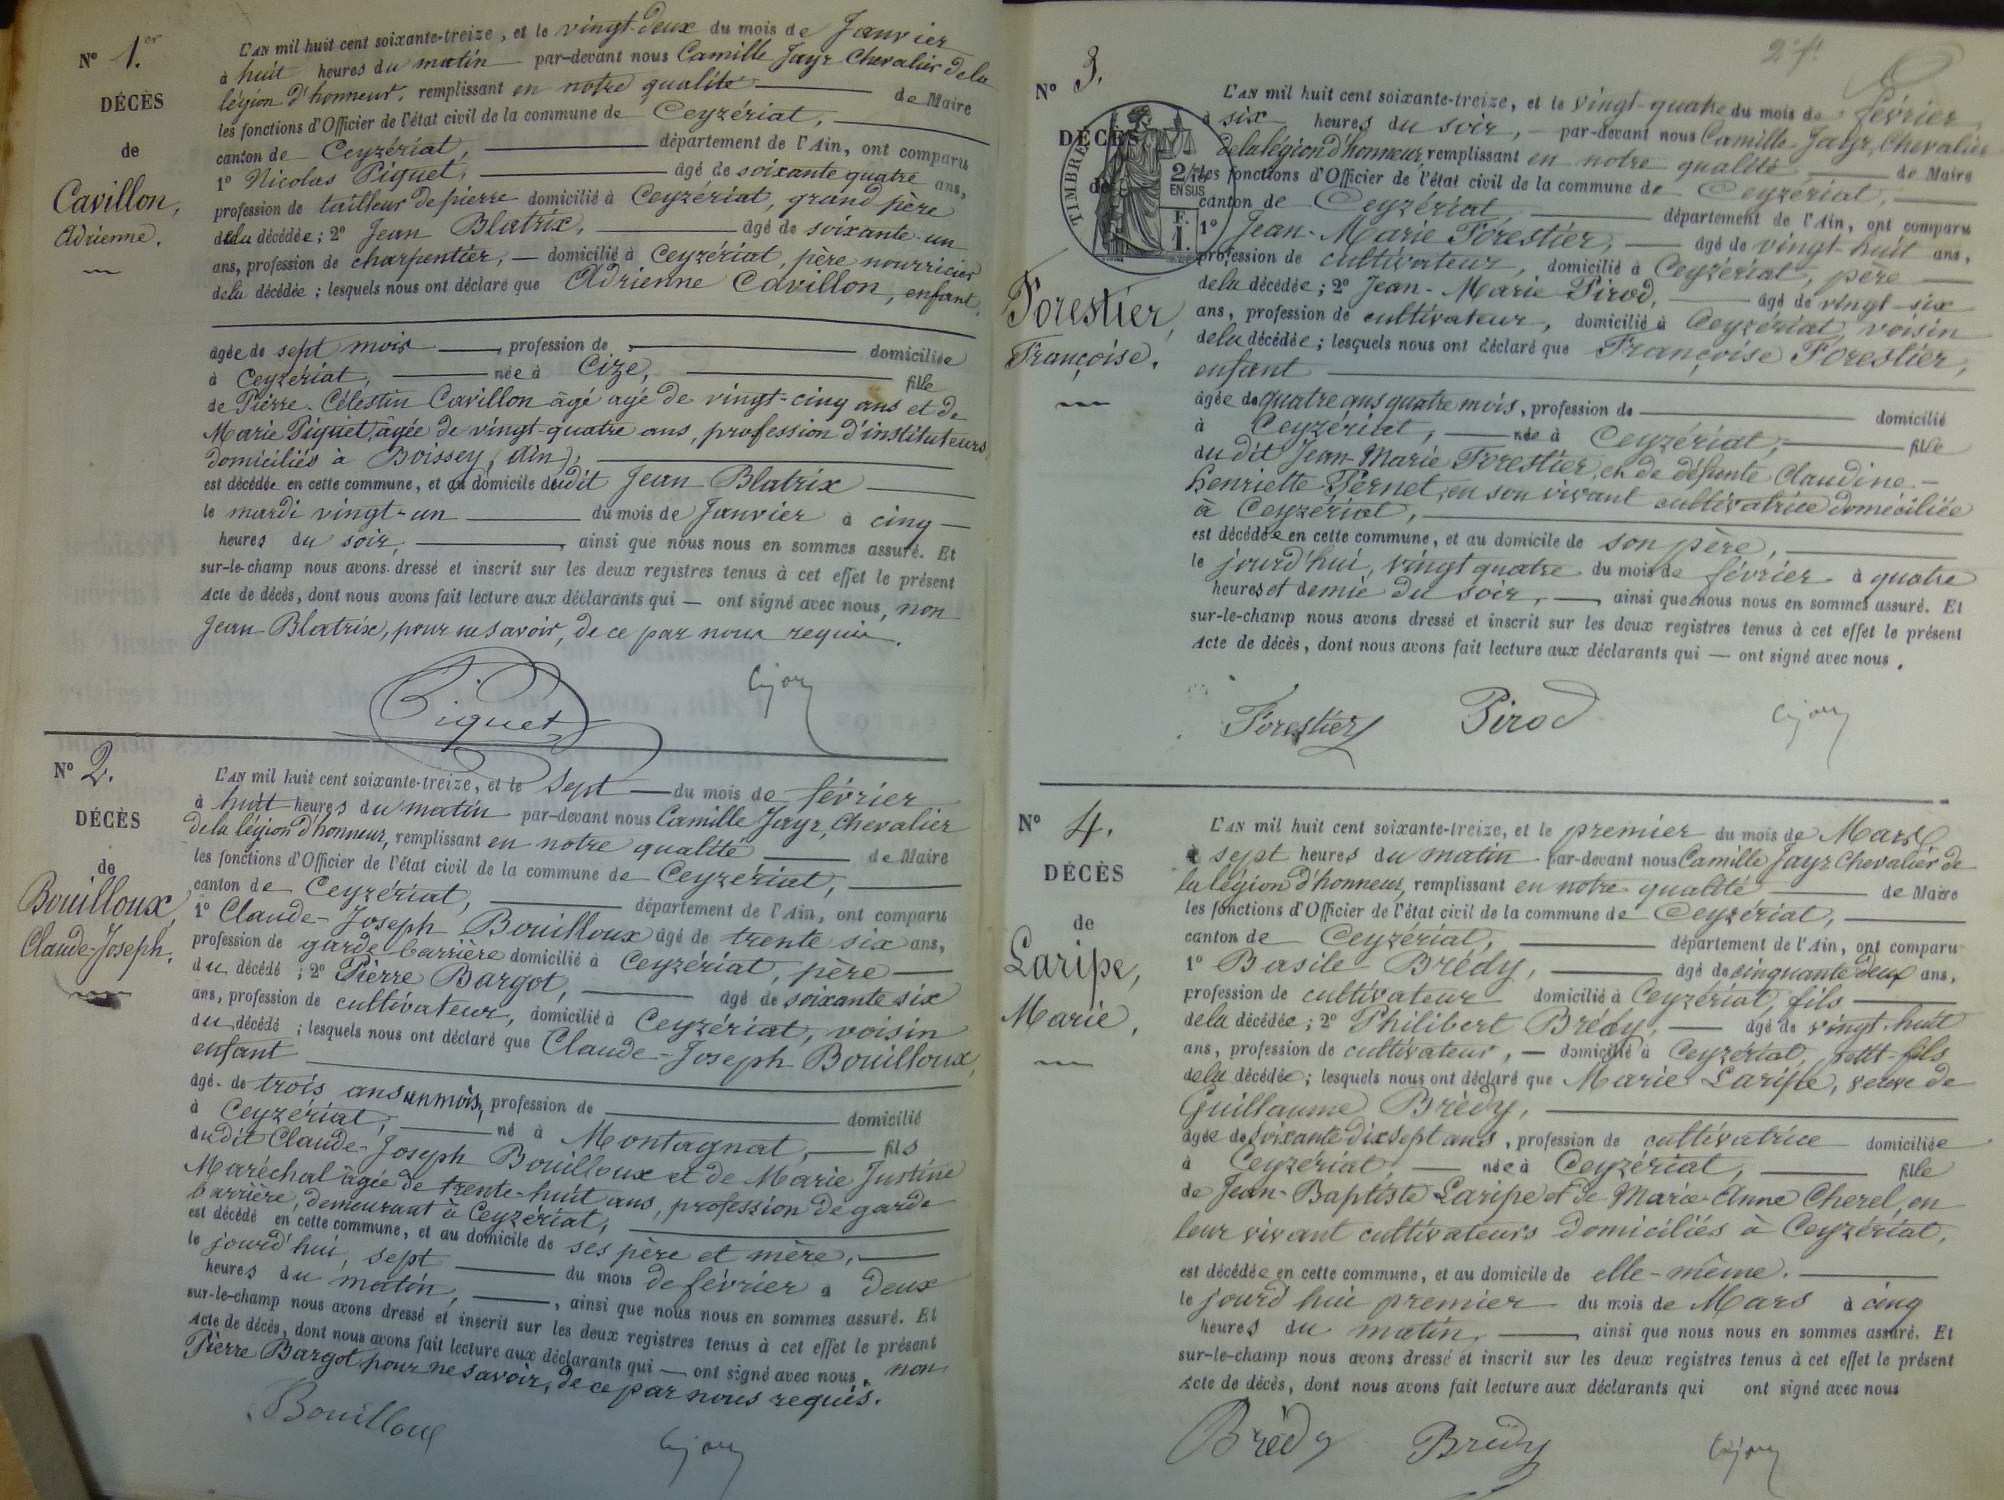 Nº 1.er
DÉCÈS
de
Cavillon,
Adrienne.
L'AN mil huit cent soixante-treize, et le vingt-deux du mois de Janvier
à huit heures du matin par-devant nous Camille Jayr Chevalier de la
légion d'honneur, remplissant en notre qualité de Maire
les fonctions d'Officier de l'état civil de la commune de Ceyzériat,
canton de Ceyzériat, département de l'Ain, ont comparu
1º Nicolas Piquet, âgé de soixante quatre ans,
profession de tailleur de pierre domicilié à Ceyzériat, grand père
de la décédée; 2º Jean Blatrix, âgé de soixante-un
ans, profession de charpentier, domicilié à Ceyzériat, père nourricier
de la décédée; lesquels nous ont déclaré que Adrienne Cavillon, enfant,
âgée de sept mois, profession de domiciliée
à Ceyzériat, née à Cize, fille
de Pierre-Célestin Cavillon âgé agé de vingt-cinq ans et de
Marie Piquet, agée de vingt quatre ans, profession d'instituteurs
domiciliés à Boissey, (Ain);
est décédée en cette commune, et au domicile dudit Jean Blatrix
le mardi vingt-un du mois de Janvier à cinq
heures du soir, ainsi que nous nous en sommes assuré. Et
sur-le-champ nous avons dressé et inscrit sur les deux registres tenus à cet effet le présent
Acte de décès, dont nous avons fait lecture aux déclarants qui ont signé avec nous, non
Jean Blatrix, pour ne savoir, de ce par nous requis.
Piquet
Nº 2.
DÉCÈS
de
Bouilloux,
Claude-Joseph.
L'AN mil huit cent soixante-treize, et le sept du mois de février
à huit heures du matin par-devant nous Camille Jayr, Chevalier
de la légion d'honneur, remplissant en notre qualité de Maire
les fonctions d'Officier de l'état civil de la commune de Ceyzériat,
canton de Ceyzériat, département de l'Ain, ont comparu
1º Claude-Joseph Bouilloux âgé de trente six ans,
profession de garde barrière domicilié à Ceyzériat, père
du décédé; 2º Pierre Bargot, âgé de soixante six
ans, profession de cultivateur, domicilié à Ceyzériat, voisin
du décédé; lesquels nous ont déclaré que Claude-Joseph Bouilloux,
enfant
âgé de trois ans un mois, profession de domicilié
à Ceyzériat, né à Montagnat, fils
du dit Claude-Joseph Bouilloux et de Marie Justine
Maréchal âgée de trente-huit ans, profession de garde
barrière, demeurant à Ceyzériat,
est décédé en cette commune, et au domicile de ses père et mère,
le jourd'hui, sept du mois de février à deux
heures du matin, ainsi que nous nous en sommes assuré. Et
sur-le-champ nous avons dressé et inscrit sur les deux registres tenus à cet effet le présent
Acte de décès, dont nous avons fait lecture aux déclarants qui ont signé avec nous, non
Pierre Bargot pour ne savoir, de ce par nous requis.
Bouilloux
2e ft
Nº 3.
DÉCÈS
de
TIMBRE
2/10
EN SUS
F.
1.
Forestier,
Françoise.
L'AN mil huit cent soixante-treize, et le vingt-quatre du mois de février,
à six heures du soir, par-devant nous Camille Jayr, Chevalier
de la légion d'honneur, remplissant en notre qualité de Maire
les fonctions d'Officier de l'état civil de la commune de Ceyzériat,
canton de Ceyzériat, département de l'Ain, ont comparu
1º Jean-Marie Forestier, âgé de vingt-huit ans,
profession de cultivateur, domicilié à Ceyzériat, père
de la décédée; 2º Jean-Marie Pirod, âgé de vingt-six
ans, profession de cultivateur, domicilié à Ceyzériat, voisin
de la décédée; lesquels nous ont déclaré que Françoise Forestier,
enfant
âgée de quatre ans quatre mois, profession de domicilié
à Ceyzériat, née à Ceyzériat, fille
du dit Jean-Marie Forestier, et de défunte Claudine-
Henriette Pernet, en son vivant cultivatrice domiciliée
à Ceyzériat,
est décédée en cette commune, et au domicile de son père,
le jourd'hui, vingt quatre du mois de février à quatre
heures et demie du soir, ainsi que nous nous en sommes assuré. Et
sur-le-champ nous avons dressé et inscrit sur les deux registres tenus à cet effet le présent
Acte de décès, dont nous avons fait lecture aux déclarants qui ont signé avec nous.
Forestier Pirod
Nº 4.
DÉCÈS
de
Laripe,
Marie,
L'AN mil huit cent soixante-treize, et le premier du mois de Mars
à sept heures du matin par-devant nous Camille Jayr Chevalier de
la légion d'honneur, remplissant en notre qualité de Maire
les fonctions d'Officier de l'état civil de la commune de Ceyzériat,
canton de Ceyzériat, département de l'Ain, ont comparu
1º Basile Brédy, âgé de cinquante deux ans,
profession de cultivateur domicilié à Ceyzériat, fils
de la décédée; 2º Philibert Brédy, âgé de vingt-huit
ans, profession de cultivateur, domicilié à Ceyzériat, petit-fils
de la décédée; lesquels nous ont déclaré que Marie Laripe, veuve de
Guillaume Brédy,
âgée de soixante dix sept ans, profession de cultivatrice domiciliée
à Ceyzériat née à Ceyzériat, fille
de Jean-Baptiste Laripe et de Marie-Anne Cherel, en
leur vivant cultivateurs domiciliés à Ceyzériat,
est décédée en cette commune, et au domicile de elle-même.
le jourd'hui premier du mois de Mars à cinq
heures du matin, ainsi que nous nous en sommes assuré. Et
sur-le-champ nous avons dressé et inscrit sur les deux registres tenus à cet effet le présent
Acte de décès, dont nous avons fait lecture aux déclarants qui ont signé avec nous
Brédy Brédy